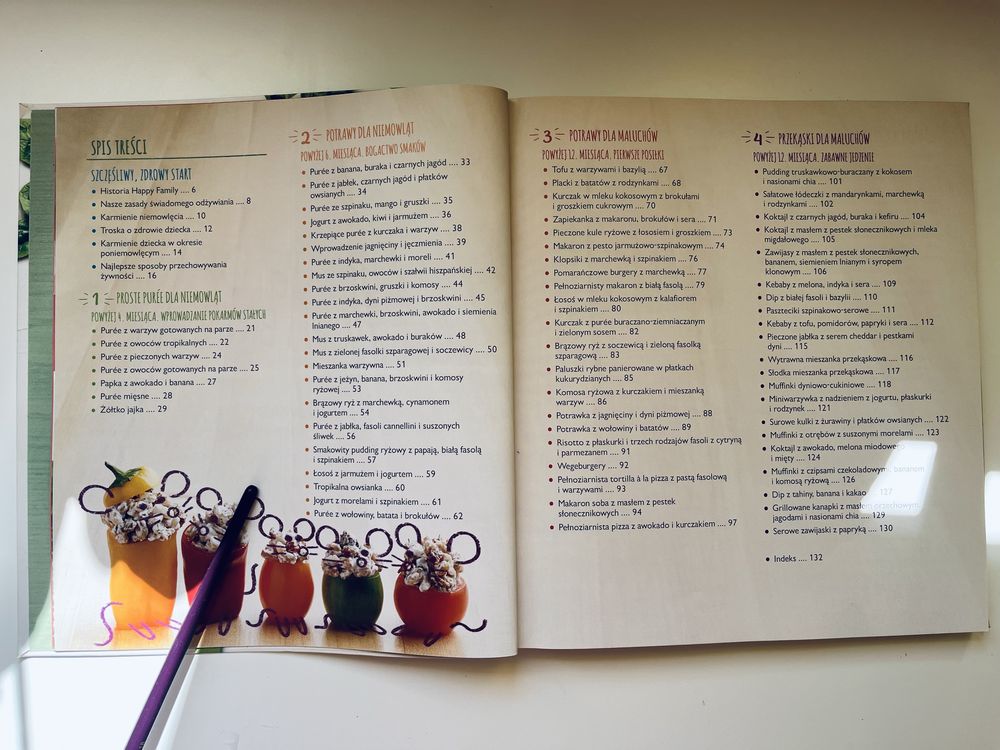 SPIS TREŚCI
SZCZĘŚLIWY, ZDROWY START
• Historia Happy Family .... 6
• Nasze zasady świadomego odżywiania .... 8
• Karmienie niemowlęcia .... 10
• Troska o zdrowie dziecka .... 12
• Karmienie dziecka w okresie
poniemowlęcym .... 14
• Najlepsze sposoby przechowywania
żywności .... 16
1 PROSTE PURÉE DLA NIEMOWLĄT
POWYŻEJ 4. MIESIĄCA. WPROWADZANIE POKARMÓW STAŁYCH
• Purée z warzyw gotowanych na parze .... 21
• Purée z owoców tropikalnych .... 22
• Purée z pieczonych warzyw .... 24
• Purée z owoców gotowanych na parze .... 25
• Papka z awokado i banana .... 27
• Purée mięsne .... 28
• Żółtko jajka .... 29
2 POTRAWY DLA NIEMOWLĄT
POWYŻEJ 6. MIESIĄCA. BOGACTWO SMAKÓW
• Purée z banana, buraka i czarnych jagód .... 33
• Purée z jabłek, czarnych jagód i płatków
owsianych .... 34
• Purée ze szpinaku, mango i gruszki .... 35
• Jogurt z awokado, kiwi i jarmużem .... 36
• Krzepiące purée z kurczaka i warzyw .... 38
• Wprowadzenie jagnięciny i jęczmienia .... 39
• Purée z indyka, marchewki i moreli .... 41
• Mus ze szpinaku, owoców i szałwii hiszpańskiej .... 42
• Purée z brzoskwini, gruszki i komosy .... 44
• Purée z indyka, dyni piżmowej i brzoskwini .... 45
• Purée z marchewki, brzoskwini, awokado i siemienia
lnianego .... 47
• Mus z truskawek, awokado i buraków .... 48
• Mus z zielonej fasolki szparagowej i soczewicy .... 50
• Mieszanka warzywna .... 51
• Purée z jeżyn, banana, brzoskwini i komosy
ryżowej .... 53
• Brązowy ryż z marchewką, cynamonem
i jogurtem .... 54
• Purée z jabłka, fasoli cannellini i suszonych
śliwek .... 56
• Smakowity pudding ryżowy z papają, białą fasolą
i szpinakiem .... 57
• Łosoś z jarmużem i jogurtem .... 59
• Tropikalna owsianka .... 60
• Jogurt z morelami i szpinakiem .... 61
• Purée z wołowiny, batata i brokułów .... 62
3 POTRAWY DLA MALUCHÓW
POWYŻEJ 12. MIESIĄCA. PIERWSZE POSIŁKI
• Tofu z warzywami i bazylią .... 67
• Placki z batatów z rodzynkami .... 68
• Kurczak w mleku kokosowym z brokułami
i groszkiem cukrowym .... 70
• Zapiekanka z makaronu, brokułów i sera .... 71
• Pieczone kule ryżowe z łososiem i groszkiem .... 73
• Makaron z pesto jarmużowo-szpinakowym .... 74
• Klopsiki z marchewką i szpinakiem .... 76
• Pomarańczowe burgery z marchewką .... 77
• Pełnoziarnisty makaron z białą fasolą .... 79
• Łosoś w mleku kokosowym z kalafiorem
i szpinakiem .... 80
• Kurczak z purée buraczano-ziemniaczanym
i zielonym sosem .... 82
• Brązowy ryż z soczewicą i zieloną fasolką
szparagową .... 83
• Paluszki rybne panierowane w płatkach
kukurydzianych .... 85
• Komosa ryżowa z kurczakiem i mieszanką
warzyw .... 86
• Potrawka z jagnięciny i dyni piżmowej .... 88
• Potrawka z wołowiny i batatów .... 89
• Risotto z płaskurki i trzech rodzajów fasoli z cytryną
i parmezanem .... 91
• Wegeburgery .... 92
• Pełnoziarnista tortilla à la pizza z pastą fasolową
i warzywami .... 93
• Makaron soba z masłem z pestek
słonecznikowych .... 94
• Pełnoziarnista pizza z awokado i kurczakiem .... 97
4 PRZEKĄSKI DLA MALUCHÓW
POWYŻEJ 12. MIESIĄCA. ZABAWNE JEDZENIE
• Pudding truskawkowo-buraczany z kokosem
i nasionami chia .... 101
• Sałatowe łódeczki z mandarynkami, marchewką
i rodzynkami .... 102
• Koktajl z czarnych jagód, buraka i kefiru .... 104
• Koktajl z masłem z pestek słonecznikowych i mleka
migdałowego .... 105
• Zawijasy z masłem z pestek słonecznikowych,
bananem, siemieniem lnianym i syropem
klonowym .... 106
• Kebaby z melona, indyka i sera .... 109
• Dip z białej fasoli i bazylii .... 110
• Paszteciki szpinakowo-serowe .... 111
• Kebaby z tofu, pomidorów, papryki i sera .... 112
• Pieczone jabłka z serem cheddar i pestkami
dyni .... 115
• Wytrawna mieszanka przekąskowa .... 116
• Słodka mieszanka przekąskowa .... 117
• Muffinki dyniowo-cukiniowe .... 118
• Miniwarzywka z nadzieniem z jogurtu, płaskurki
i rodzynek .... 121
• Surowe kulki z żurawiny i płatków owsianych .... 122
• Muffinki z otrębów z suszonymi morelami .... 123
• Koktajl z awokado, melona miodowego
i mięty .... 124
• Muffinki z czipsami czekoladowymi, bananem
i komosą ryżową .... 126
• Dip z tahiny, banana i kakao .... 127
• Grillowane kanapki z masłem orzechowym,
jagodami i nasionami chia .... 129
• Serowe zawijaski z papryką .... 130
• Indeks .... 132